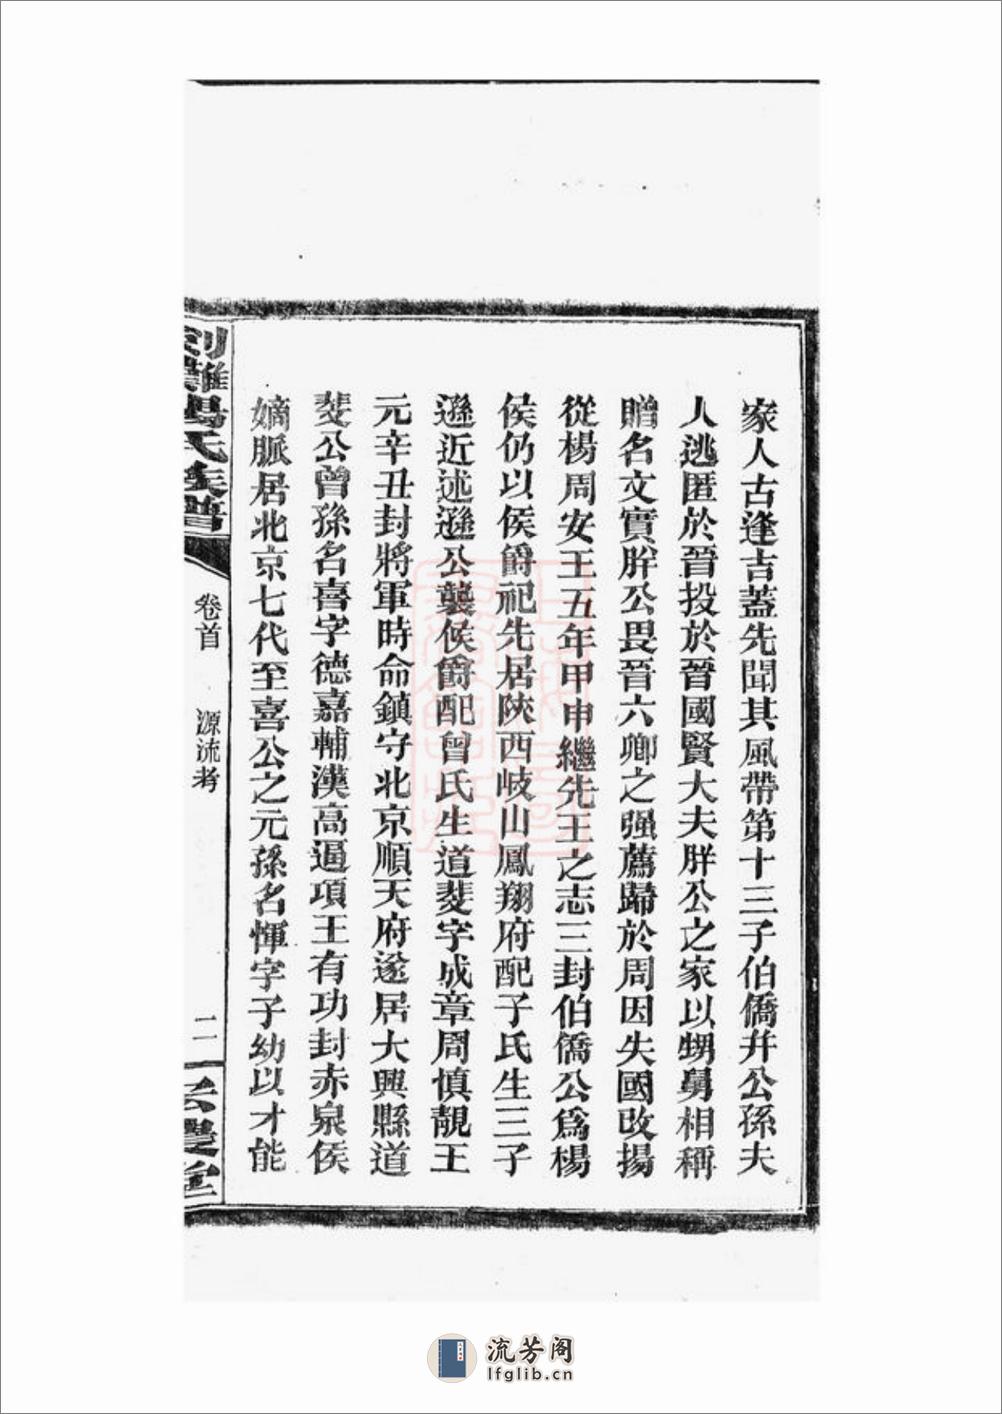 家人古逢吉蓋先聞其風帶第十三子伯僑幷公孫夫
人逃匿於晉投於晉國賢大夫胖公之家以甥舅相稱
贈名文實胖公畏晉六卿之强薦歸於周因失國改揚
從楊周安王五年甲申繼先王之志三封伯僑公爲楊
侯仍以侯爵祀先居陝西岐山鳳翔府配子氏生三子
遜近述遜公襲侯爵配曾氏生道斐字成章周慎靚王
元辛丑封將軍時命鎮守北京順天府遂居大興縣道
斐公曾孫名喜字德嘉輔漢高逼項王有功封赤泉侯
嫡脈居北京七代至喜公之元孫名惲字子幼以才能
楊氏族譜
卷首 源流考
二
流芳阁
lfglib.cn